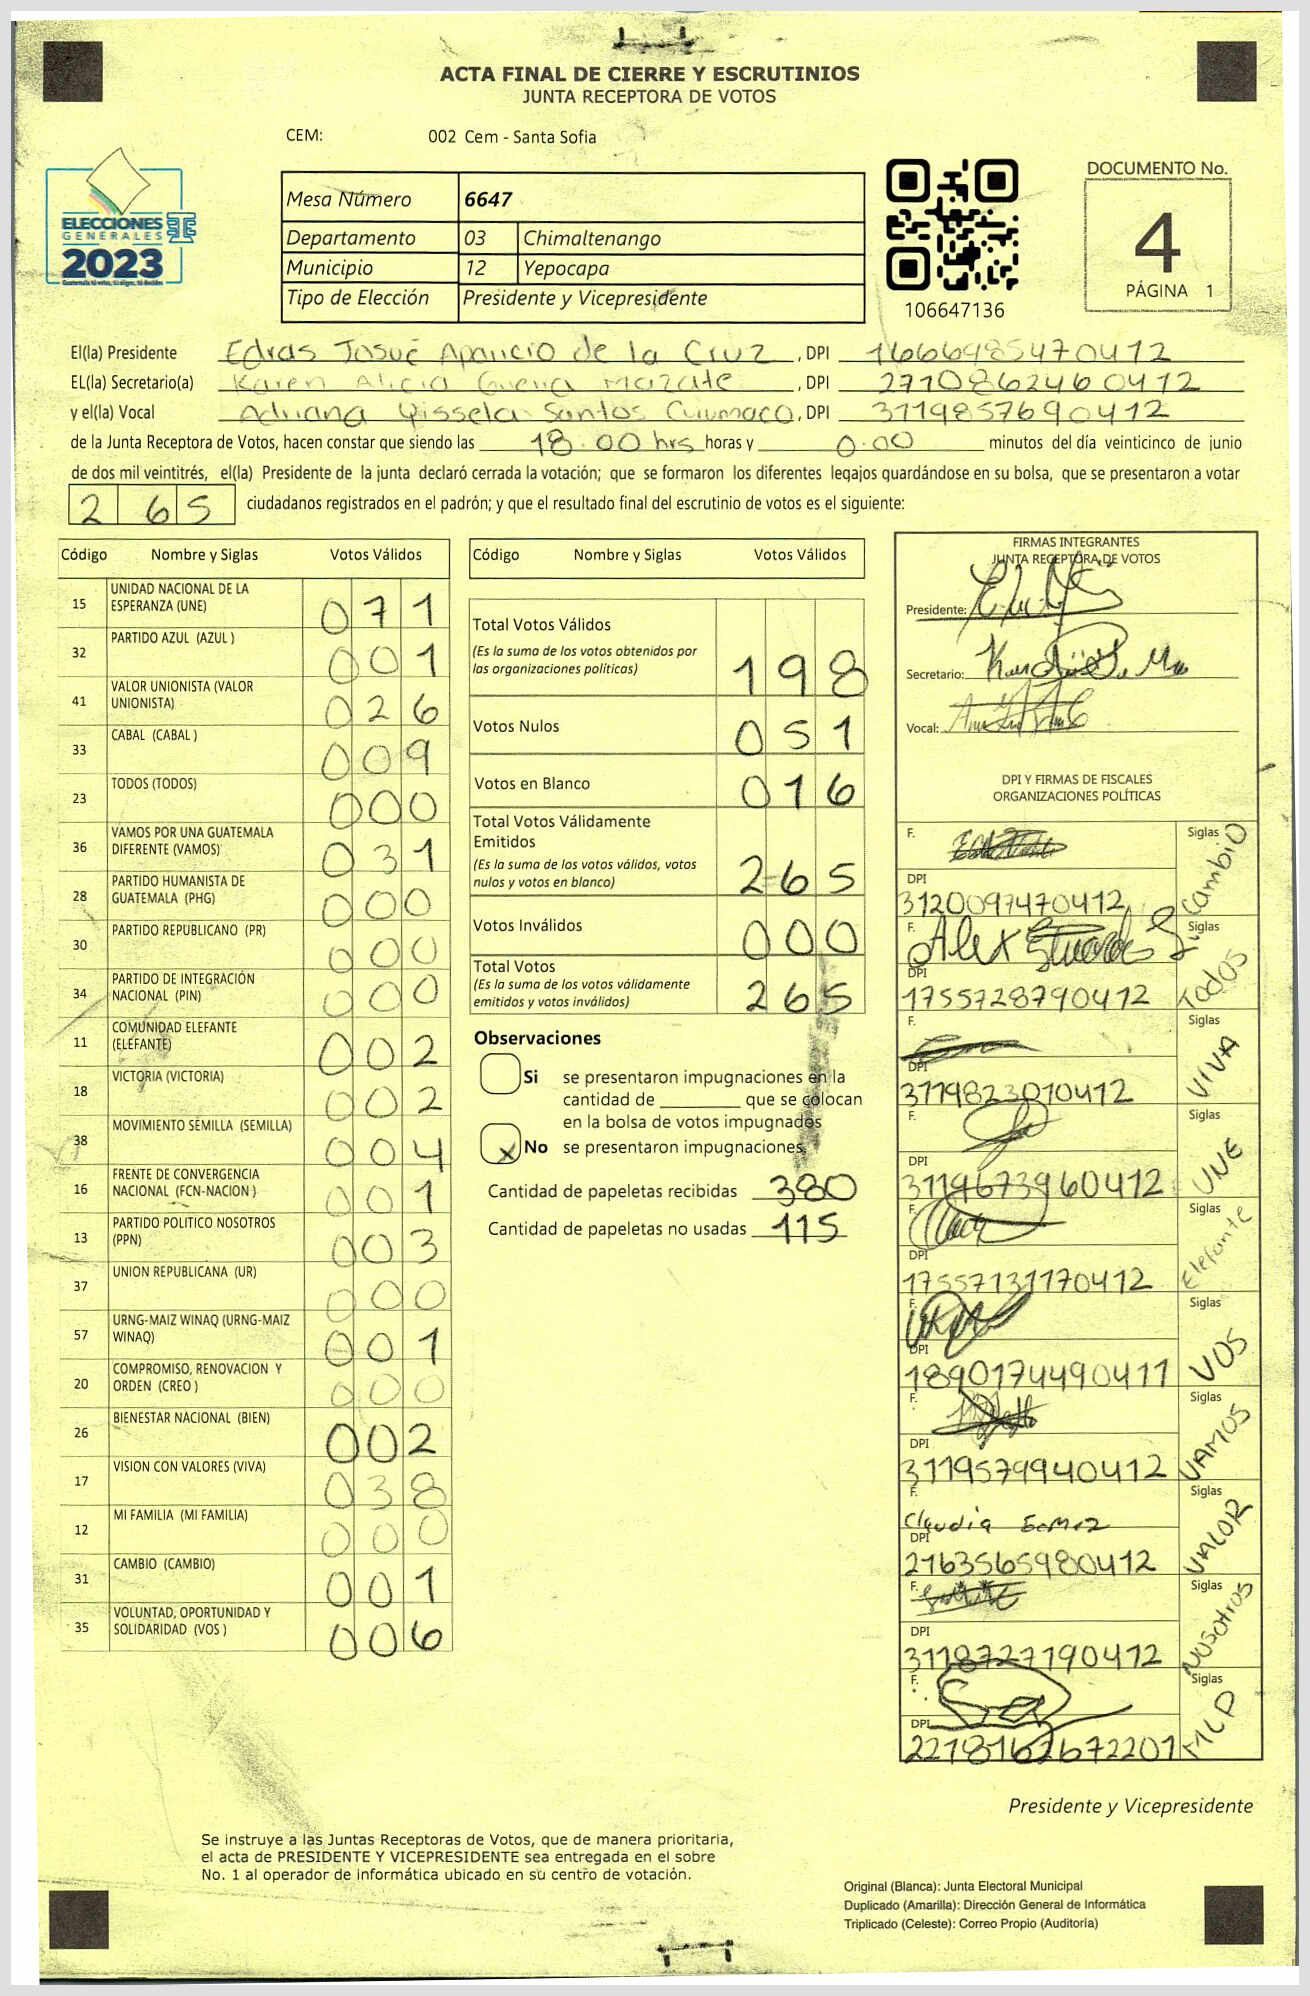 ACTA FINAL DE CIERRE Y ESCRUTINIOS
JUNTA RECEPTORA DE VOTOS
CEM: 002 Cem - Santa Sofia
ELECCIONES
GENERALES
2023
Mesa Número 6647
Departamento 03 Chimaltenango
Municipio 12 Yepocapa
Tipo de Elección Presidente y Vicepresidente
106647136
DOCUMENTO No.
4
PÁGINA 1
El(la) Presidente Edras Josué Aparicio de la Cruz, DPI 1666985470412
EL(la) Secretario(a) Karen Alicia Guerra Mazate, DPI 2710862460412
y el(la) Vocal Adriana Yissela Santos Cuumaco, DPI 3119857690412
de la Junta Receptora de Votos, hacen constar que siendo las 18:00 hrs horas y 0:00 minutos del día veinticinco de junio
de dos mil veintitrés, el(la) Presidente de la junta declaró cerrada la votación; que se formaron los diferentes legajos guardándose en su bolsa, que se presentaron a votar
265 ciudadanos registrados en el padrón; y que el resultado final del escrutinio de votos es el siguiente:
Código Nombre y Siglas Votos Válidos
15 UNIDAD NACIONAL DE LA ESPERANZA (UNE) 071
32 PARTIDO AZUL (AZUL ) 001
41 VALOR UNIONISTA (VALOR UNIONISTA) 026
33 CABAL (CABAL ) 009
23 TODOS (TODOS) 000
36 VAMOS POR UNA GUATEMALA DIFERENTE (VAMOS) 031
28 PARTIDO HUMANISTA DE GUATEMALA (PHG) 000
30 PARTIDO REPUBLICANO (PR) 000
34 PARTIDO DE INTEGRACIÓN NACIONAL (PIN) 000
11 COMUNIDAD ELEFANTE (ELEFANTE) 002
18 VICTORIA (VICTORIA) 002
38 MOVIMIENTO SEMILLA (SEMILLA) 004
16 FRENTE DE CONVERGENCIA NACIONAL (FCN-NACION ) 001
13 PARTIDO POLITICO NOSOTROS (PPN) 003
37 UNION REPUBLICANA (UR) 000
57 URNG-MAIZ WINAQ (URNG-MAIZ WINAQ) 001
20 COMPROMISO, RENOVACION Y ORDEN (CREO ) 000
26 BIENESTAR NACIONAL (BIEN) 002
17 VISION CON VALORES (VIVA) 038
12 MI FAMILIA (MI FAMILIA) 000
31 CAMBIO (CAMBIO) 001
35 VOLUNTAD, OPORTUNIDAD Y SOLIDARIDAD (VOS ) 006
Código Nombre y Siglas Votos Válidos
Total Votos Válidos
(Es la suma de los votos obtenidos por
las organizaciones políticas) 198
Votos Nulos 051
Votos en Blanco 016
Total Votos Válidamente
Emitidos
(Es la suma de los votos válidos, votos
nulos y votos en blanco) 265
Votos Inválidos 000
Total Votos
(Es la suma de los votos válidamente
emitidos y votos inválidos) 265
Observaciones
Si se presentaron impugnaciones en la
cantidad de ________ que se colocan
en la bolsa de votos impugnados
x No se presentaron impugnaciones
Cantidad de papeletas recibidas 380
Cantidad de papeletas no usadas 115
FIRMAS INTEGRANTES
JUNTA RECEPTORA DE VOTOS
Presidente:
Secretario:
Vocal:
DPI Y FIRMAS DE FISCALES
ORGANIZACIONES POLÍTICAS
F. Siglas cambio
DPI
3120097470412
F. Alex Estuardo Siglas Todos
DPI
1755728790412
F. Siglas VIVA
DPI
3119823010412
F. Siglas UNE
DPI
3119673960412
F. Siglas Elefante
DPI
1755713170412
F. Siglas VOS
DPI
1890174490411
F. Siglas VAMOS
DPI
3119579940412
F. Claudia Gomez Siglas VALOR
DPI
2163565980412
F. Siglas Nosotros
DPI
3118727190412
F. Siglas MLP
DPI
2278162672201
Presidente y Vicepresidente
Se instruye a las Juntas Receptoras de Votos, que de manera prioritaria,
el acta de PRESIDENTE Y VICEPRESIDENTE sea entregada en el sobre
No. 1 al operador de informática ubicado en su centro de votación.
Original (Blanca): Junta Electoral Municipal
Duplicado (Amarilla): Dirección General de Informática
Triplicado (Celeste): Correo Propio (Auditoría)